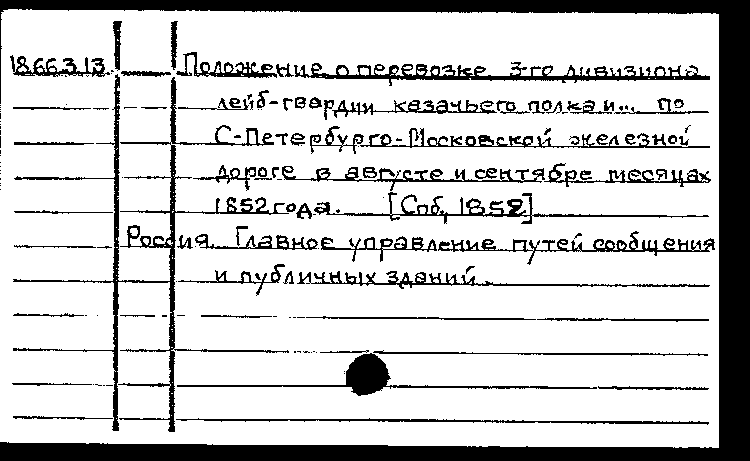 18.66.3.13. Положение о перевозке 3-го дивизиона
лейб-гвардии казачьего полка и... по
С-Петербурго-Московской железной
дороге в августе и сентябре месяцах
1852 года. [Спб, 1852]
Россия. Главное управление путей сообщения
и публичных зданий.